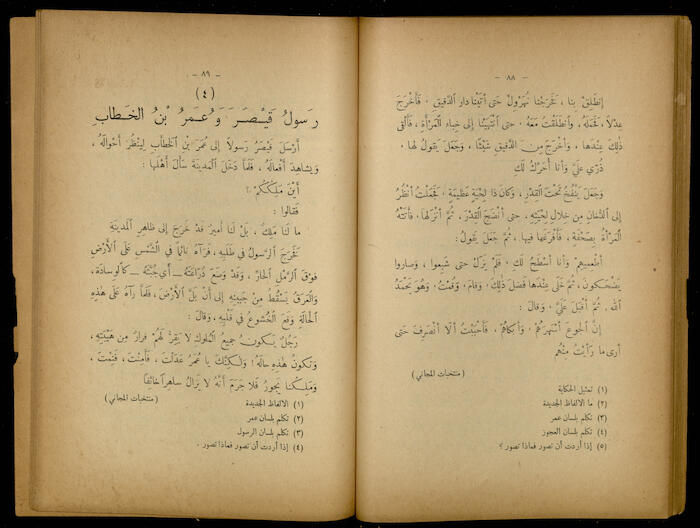 - ٨٨ -
إِنْطَلِقْ بِنا ، فَخَرَجْنا نُهَرْوِلُ حَتى أَتَيْنا دارَ الدَّقيقِ . فَأَخْرَجَ
عِدْلاً ، فَحَمَلَهُ ، وَانْطَلَقْتُ مَعَهُ . حَتى انْتَهَيْنا إلى خِباءِ المَرْأَةِ ، فَأَلقى
ذٰلِكَ عِنْدَها ، وَأَخْرَجَ مِنَ الدَّقيقِ شَيْئًا ، وَجَعَلَ يَقُولُ لها ،
ذُرّي عَلَيَّ وَأنا أُحَرِّكُ لَكِ
وَجَعَلَ يَنْفُخُ تَحْتَ القِدْرِ . وَكانَ ذا لِحْيَةٍ عَظيمَةٍ . فَجَعَلْتُ أَنْظُرُ
إلى الدُّخانِ مِن خِلالِ لِحْيَتِهِ ، حتى أَنْضَجَ القِدْرَ . ثُمَّ أَنْزَلَها . فَأَتَتْهُ
المَرْأَةُ بِصَحْفَةٍ ، فَأَفْرَغَها فيها . ثمَّ جَعَلَ يَقُولُ :
أَطْعِميهِمْ وَأنا أُسَطِّحُ لَكِ . فَلَمْ يَزَلْ حتى شَبِعوا ، وَصاروا
يَضْحَكونَ . ثمَّ خَلّى عِنْدَها فَضْلَ ذٰلِكَ . وَقامَ . وَقُمْتُ . وَهُوَ يَحْمَدُ
الله . ثُمَّ أَقْبَلَ عَلَيَّ . وَقالَ :
إنَّ الجُوعَ أَسْهَرَهُمْ . وَأَبْكاهُمْ . فَأَحْبَبْتُ أَلّا أَنْصَرِفَ حَتى
أَرى ما رَأَيْتُ مِنْهُم
(منتخبات المجاني)
(١) تمثيل الحكاية
(٢) ما الالفاظ الجديدة
(٣) تكلم بلسان عمر
(٤) تكلم بلسان العجوز
(٥) إذا أردت أن تصور فماذا تصور ؟
- ٨٩ -
(٤)
رَسولُ قَيْصَرَ وَعُمَرُ بْنُ الخَطابِ
أَرْسَلَ قَيْصَرُ رَسولاً إلى عُمَرَ بْنِ الخَطابِ لِيَنْظُرَ أَحْوالَهُ ،
وَيُشاهِدَ أَفْعالَهُ . فَلَمّا دَخَلَ المَدينَةَ سَأَلَ أَهْلَها :
أَيْنَ مَلِكُكُمْ ؟
فَقالوا :
ما لَنا مَلِكٌ ، بَلْ لَنا أَميرٌ قَدْ خَرَجَ إلى ظاهِرِ المَدينَةِ
فَخَرَجَ الرَّسولُ في طَلَبِهِ ، فَرَآهُ نائِمًا في الشَّمْسِ عَلى الأَرْضِ
فَوْقَ الرَّمْلِ الحارِّ ، وَقَدْ وَضَعَ دُرّاعَتَهُ — أَيْ جُبَّتَهُ — كَالوِسادَةِ ،
وَالعَرَقُ يَسْقُطُ مِنْ جَبينِهِ إلى أَنْ بَلَّ الأَرْضَ ، فَلَمّا رَآهُ عَلى هٰذِهِ
الحالَةِ وَقَعَ الخُشوعُ في قَلْبِهِ . وَقالَ :
رَجُلٌ يَكونُ جَميعُ المُلوكِ لا يَقَرُّ لَهُمْ قَرارٌ مِنْ هَيْبَتِهِ ،
وَتَكونُ هٰذِهِ حالَهُ ! وَلٰكِنَّكَ يا عُمَرُ عَدَلْتَ ، فَأَمِنْتَ ، فَنِمْتَ ،
وَمَلِكُنا يَجورُ فَلا جَرَمَ أَنَّهُ لا يَزالُ ساهِراً خائِفًا
(منتخبات المجاني)
(١) الالفاظ الجديدة
(٢) تكلم بلسان عمر
(٣) تكلم بلسان الرسول
(٤) إذا أردت أن تصور فماذا تصور .